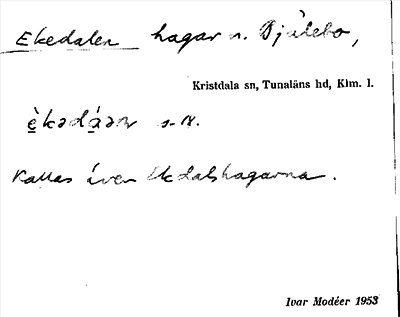 Ekedalen hagar n. Bjälebo,
Kristdala sn, Tunaläns hd, Klm. l.
Kallas även Ekdalshagarna.
Ivar Modéer 1953